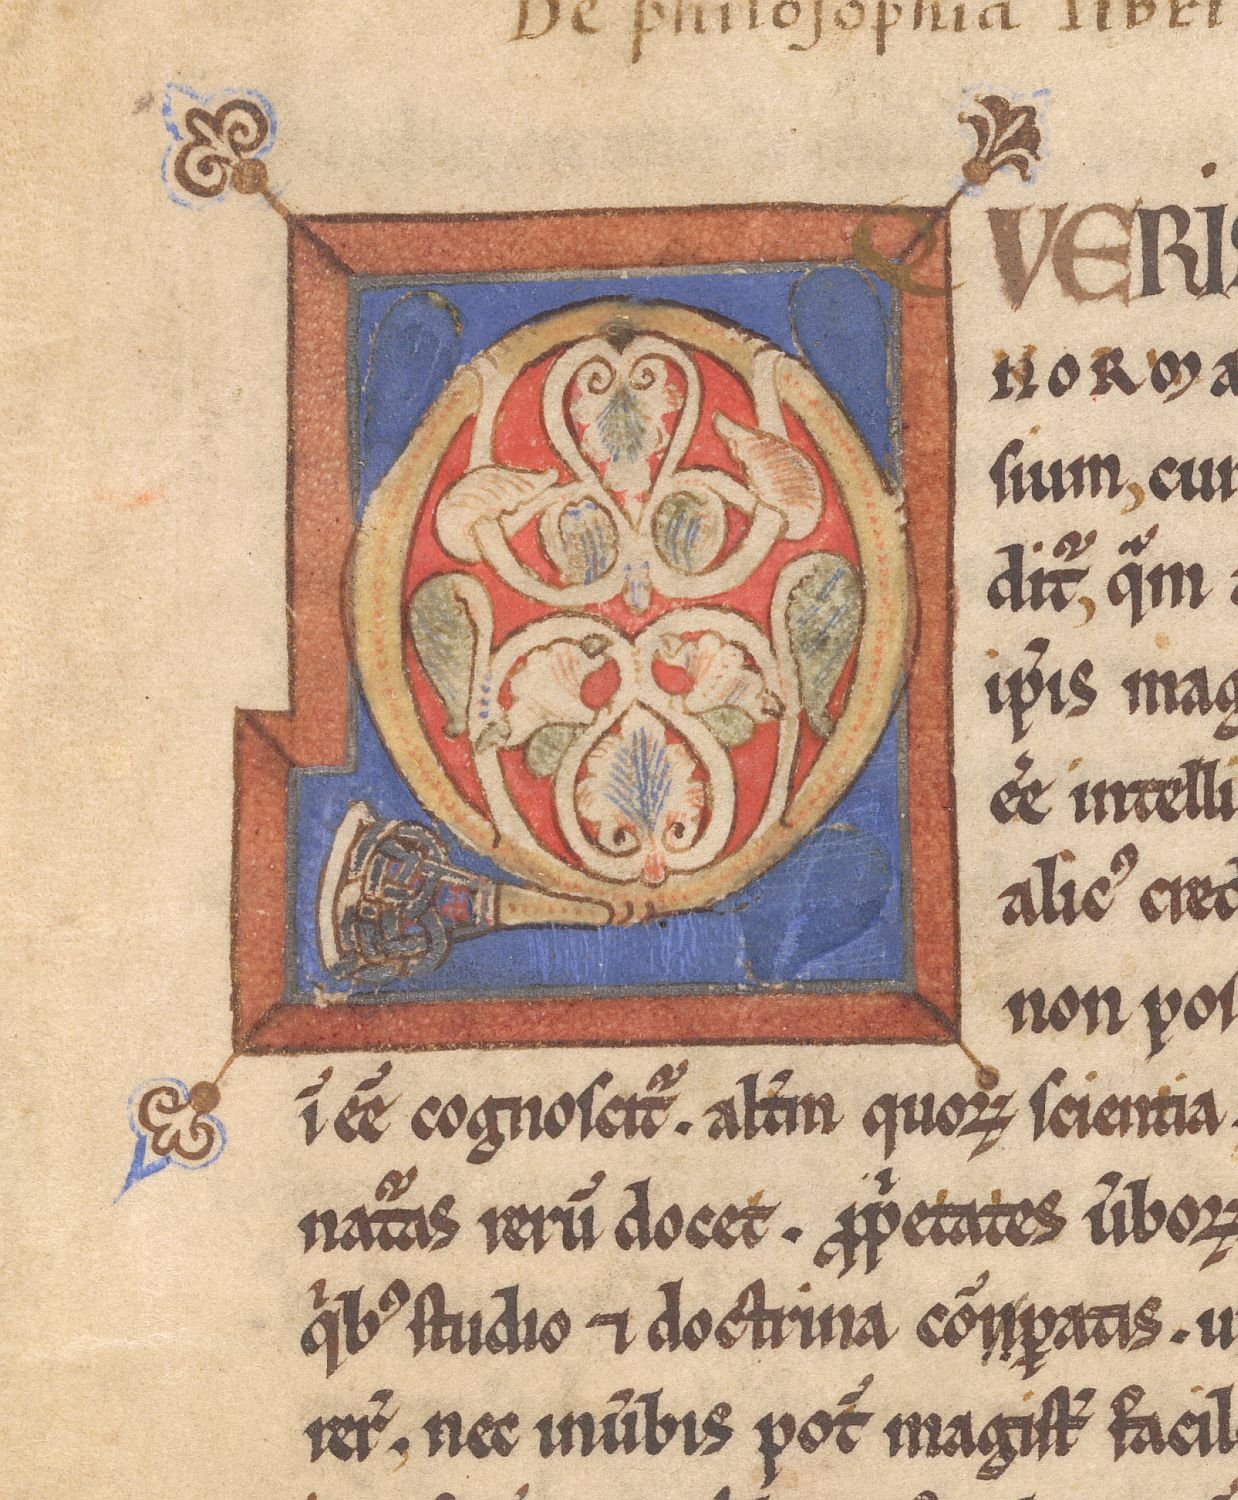 De philosophia libri
QVERIS
NORMA
sium, cum
dit᷑, qᷓm a
ip̄is mag
eē intelli
alic᾽ cred
non pos
ī eē cognoscit᷑. alt̄m quoꝝ scientia.
nat᷑as rerū docet. ꝓp̄etates ūboꝝ
qⁱb᾽ studio ⁊ doctrina cōꝑatis. u
rer᷑, nec inūbis pot̄ magist᷑ facil